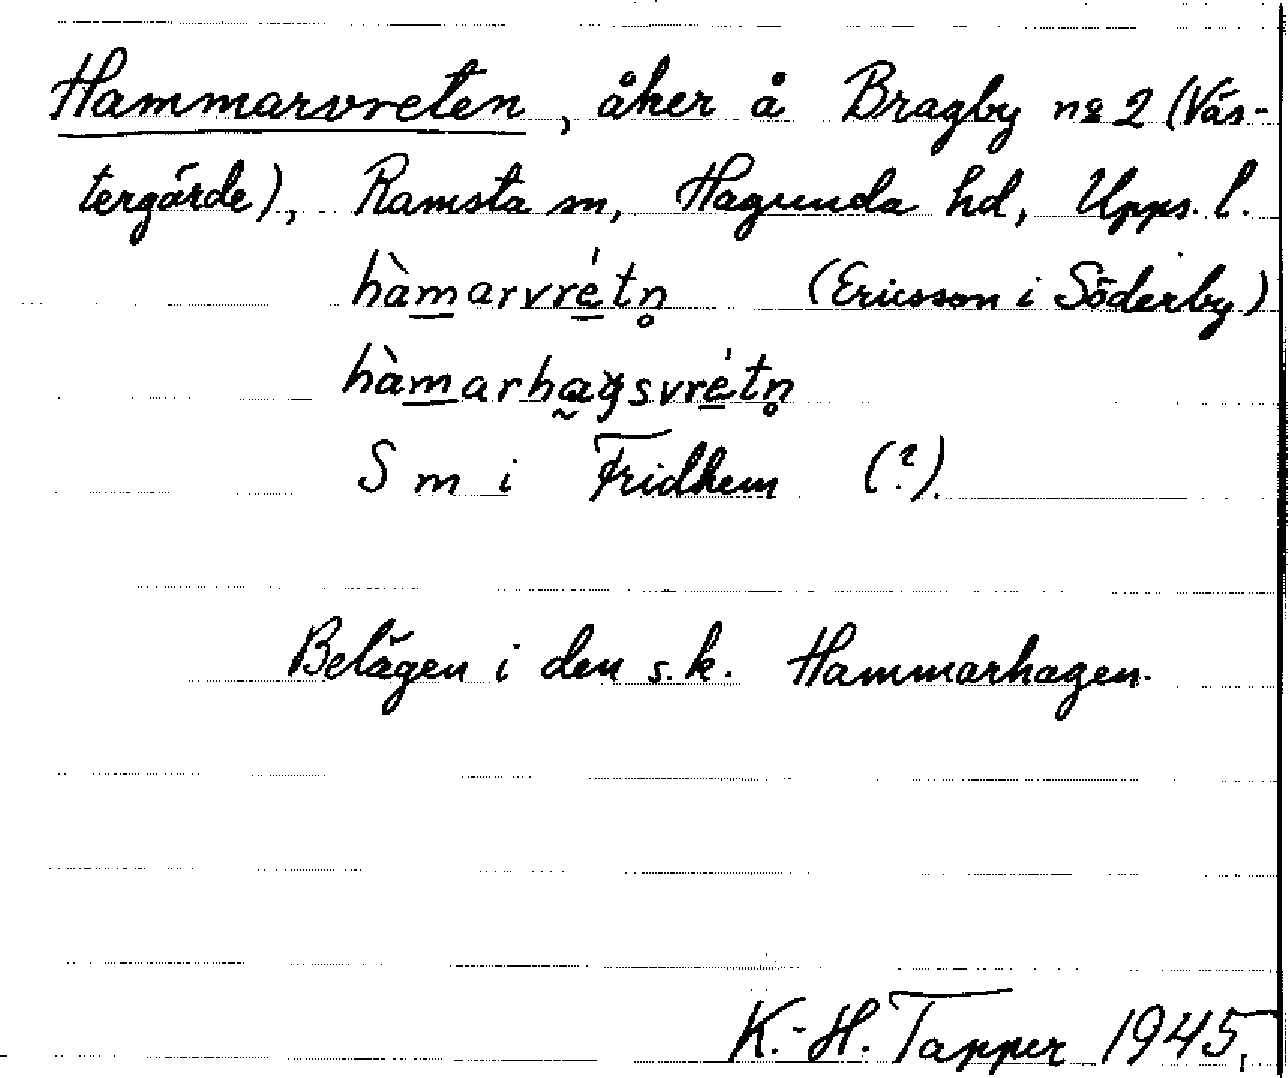 Hammarvreten, åker å Bragby nº 2 (Väs-
tergärde), Ramsta sn, Hagunda hd, Upps. l.
hàmarvrétn̥ (Ericsson i Söderby)
hàmarhagsvrétn̥
S m i Fridhem (?).
Belägen i den s.k. Hammarhagen.
K.-H. Tapper 1945.